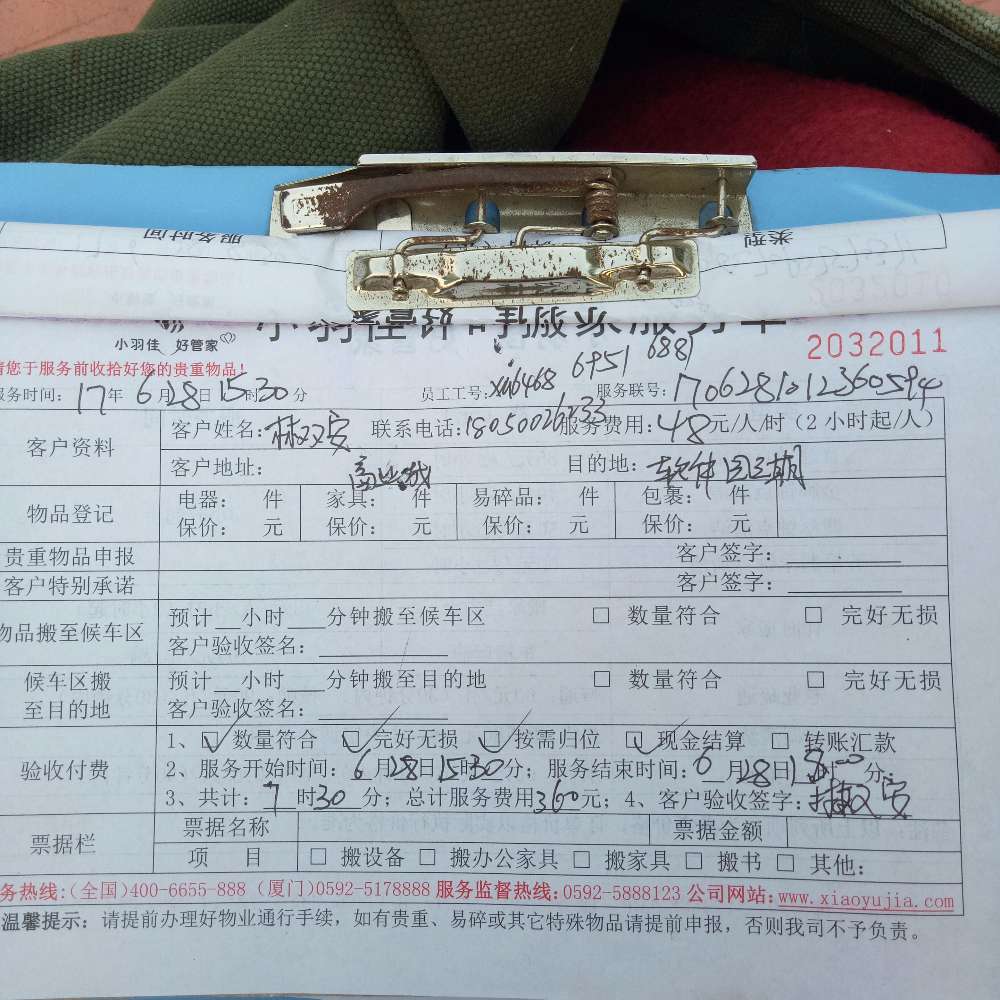 服务时间
类型
小羽佳 好管家
2032011
请您于服务前收拾好您的贵重物品!
6951 6881
服务时间: 17年 6月28日15时30分 员工工号: xm6468 服务联号: 1706281012360594
客户资料 客户姓名:林双安 联系电话:18050026233 服务费用:48元/人/时(2小时起/人)
客户地址: 商业城 目的地: 软件园三期
物品登记 电器: 件 家具: 件 易碎品: 件 包裹: 件
保价: 元 保价: 元 保价: 元 保价: 元
贵重物品申报 客户签字:
客户特别承诺 客户签字:
物品搬至候车区 预计__小时___分钟搬至候车区 □ 数量符合 □ 完好无损
客户验收签名:
候车区搬至目的地 预计__小时___分钟搬至目的地 □ 数量符合 □ 完好无损
客户验收签名:
验收付费 1、☑ 数量符合 ☑ 完好无损 ☑ 按需归位 ☑ 现金结算 □ 转账汇款
2、服务开始时间: 6月28日15时30分; 服务结束时间: 6月28日18时00分;
3、共计: 7时30分; 总计服务费用360元; 4、客户验收签字: 林双安
票据栏 票据名称 票据金额
项 目 □ 搬设备 □ 搬办公家具 □ 搬家具 □ 搬书 □ 其他:
务热线:(全国)400-6655-888 (厦门)0592-5178888 服务监督热线:0592-5888123 公司网站:www.xiaoyujia.com
温馨提示: 请提前办理好物业通行手续, 如有贵重、易碎或其它特殊物品请提前申报, 否则我司不予负责。